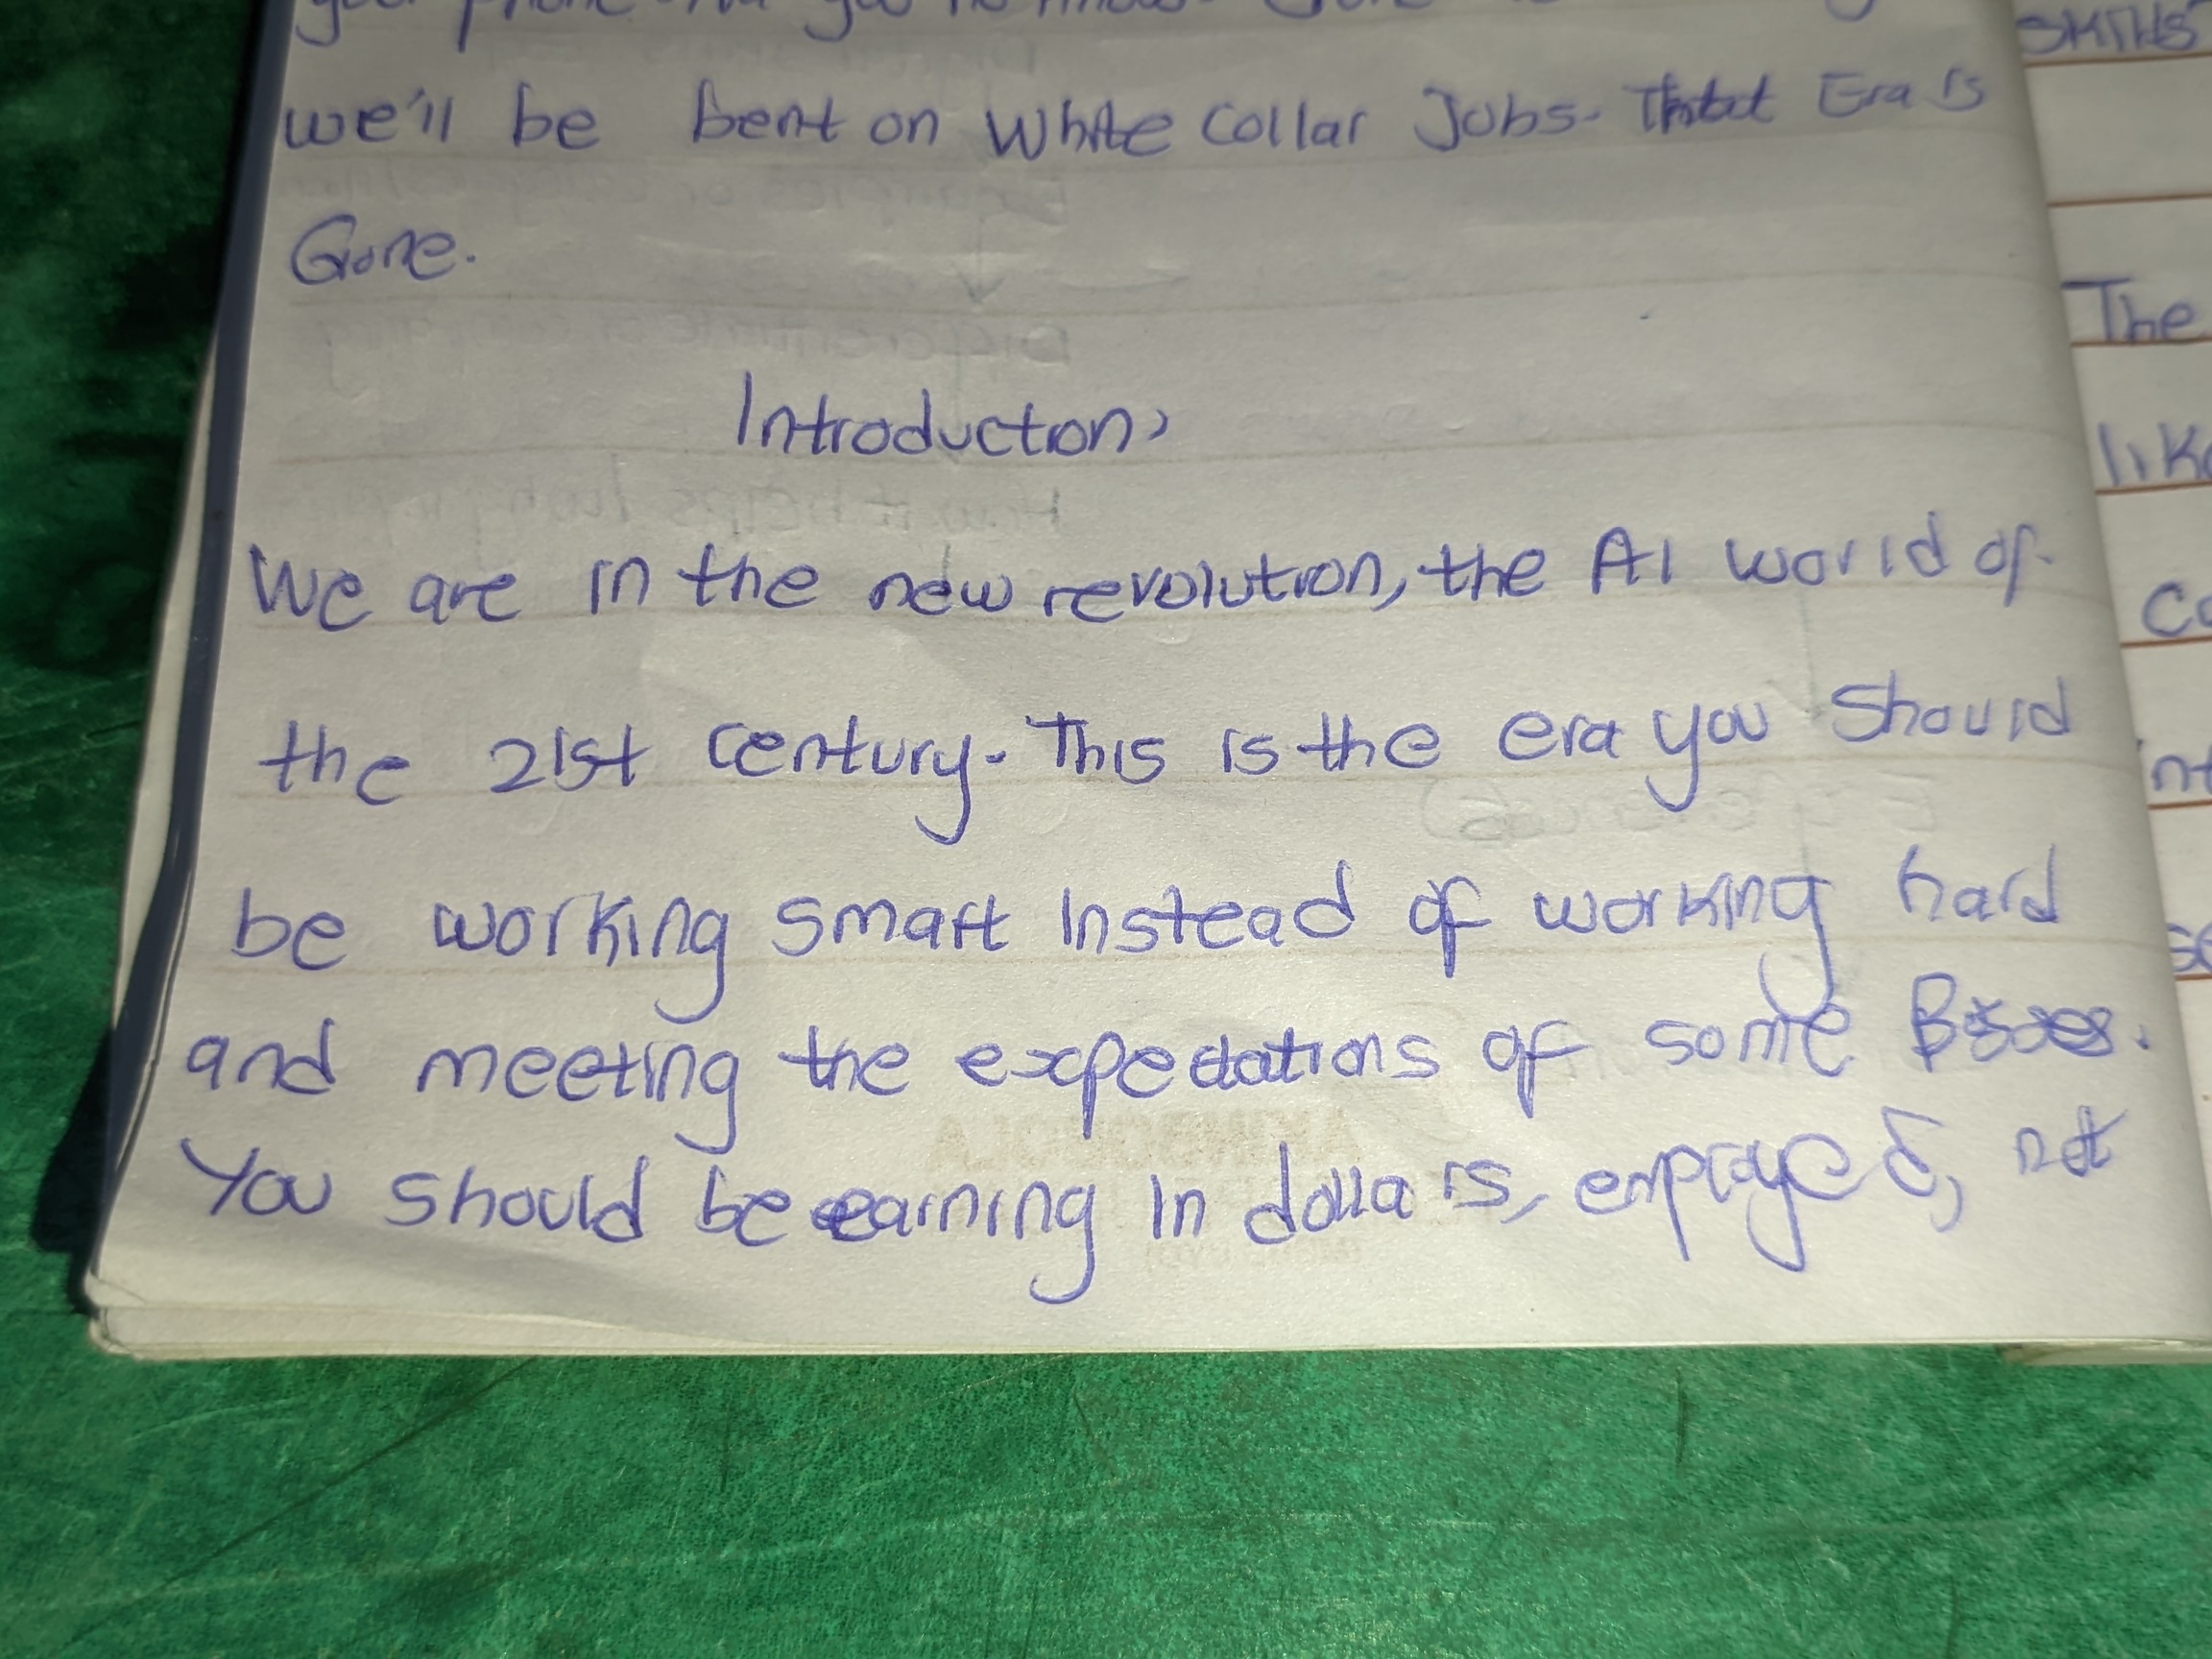 we'll be bent on White Collar Jobs. That Era is
Gone.
Introduction,
We are in the new revolution, the AI world of
the 21st century. This is the era you should
be working smart instead of working hard
and meeting the expectations of some
You should be earning in dollars, employed, not
SKILLS
The